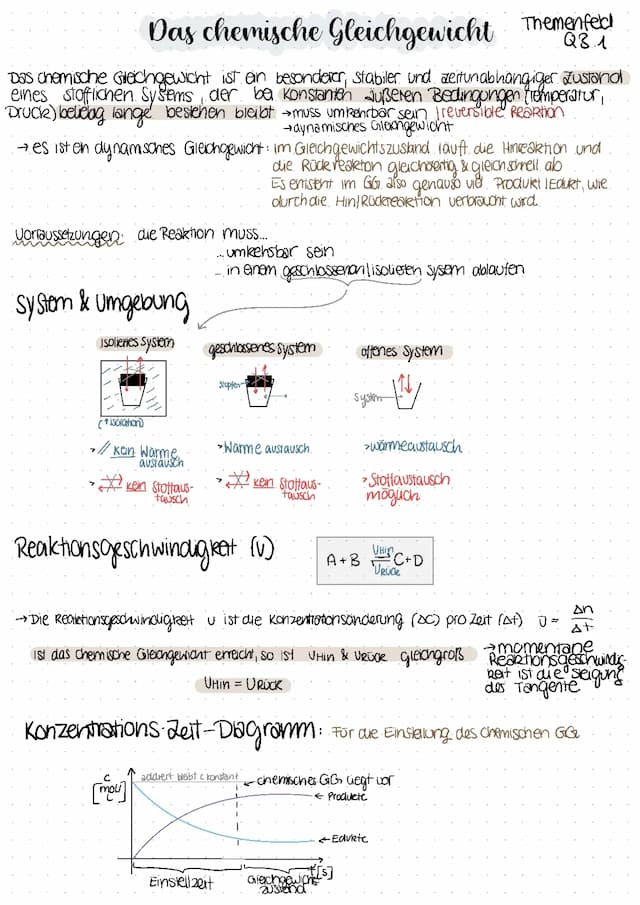 Das chemische Gleichgewicht
Themenfeld
Q3.1
Das chemische Gleichgewicht ist ein besonderer, stabiler und zeitunabhängiger Zustand
eines stofflichen Systems, der bei konstanten äußeren Bedingungen (Temperatur,
Druck) beliebig lange bestehen bleibt → muss umkehrbar sein | reversible Reaktion
→ dynamisches Gleichgewicht
→ es ist ein dynamisches Gleichgewicht: im Gleichgewichtszustand läuft die Hinreaktion und
die Rückreakton gleichzeitig & gleichschnell ab
Es entsteht im GG also genauso viel Produkt/Edukt, wie
durch die Hin/Rückreaktion verbraucht wird.
Voraussetzungen: die Reaktion muss...
... umkehrbar sein
... in einem geschlossenen/isolierten System ablaufen
System & Umgebung
isoliertes System
geschlossenes System
offenes System
Stopfen
System
(↑ Isolation)
> // kein Wärme
austausch
> Wärme austausch
> wärmeaustausch
> kein Stoffaus-
tausch
> kein Stoffaus-
tausch
> Stoffaustausch
möglich
Reaktionsgeschwindigkeit (v)
A + B ⇌ C + D
VHin
VRück
→ Die Reaktionsgeschwindigkeit v ist die Konzentrationsänderung (ΔC) pro Zeit (Δt) v̅ = Δn/Δt
Ist das chemische Gleichgewicht erreicht, so ist VHin & VRück gleichgroß
VHin = VRück
→ momentane
Reaktionsgeschwindig-
keit ist die Steigung
des Tangente
Konzentrations-Zeit-Diagramm: Für die Einstellung des chemischen GGs
c
[mol/l]
addiert bleibt c konstant
← chemisches GG liegt vor
← Produkte
← Edukte
t[s]
Einstellzeit
Gleichgewichts-
zustand